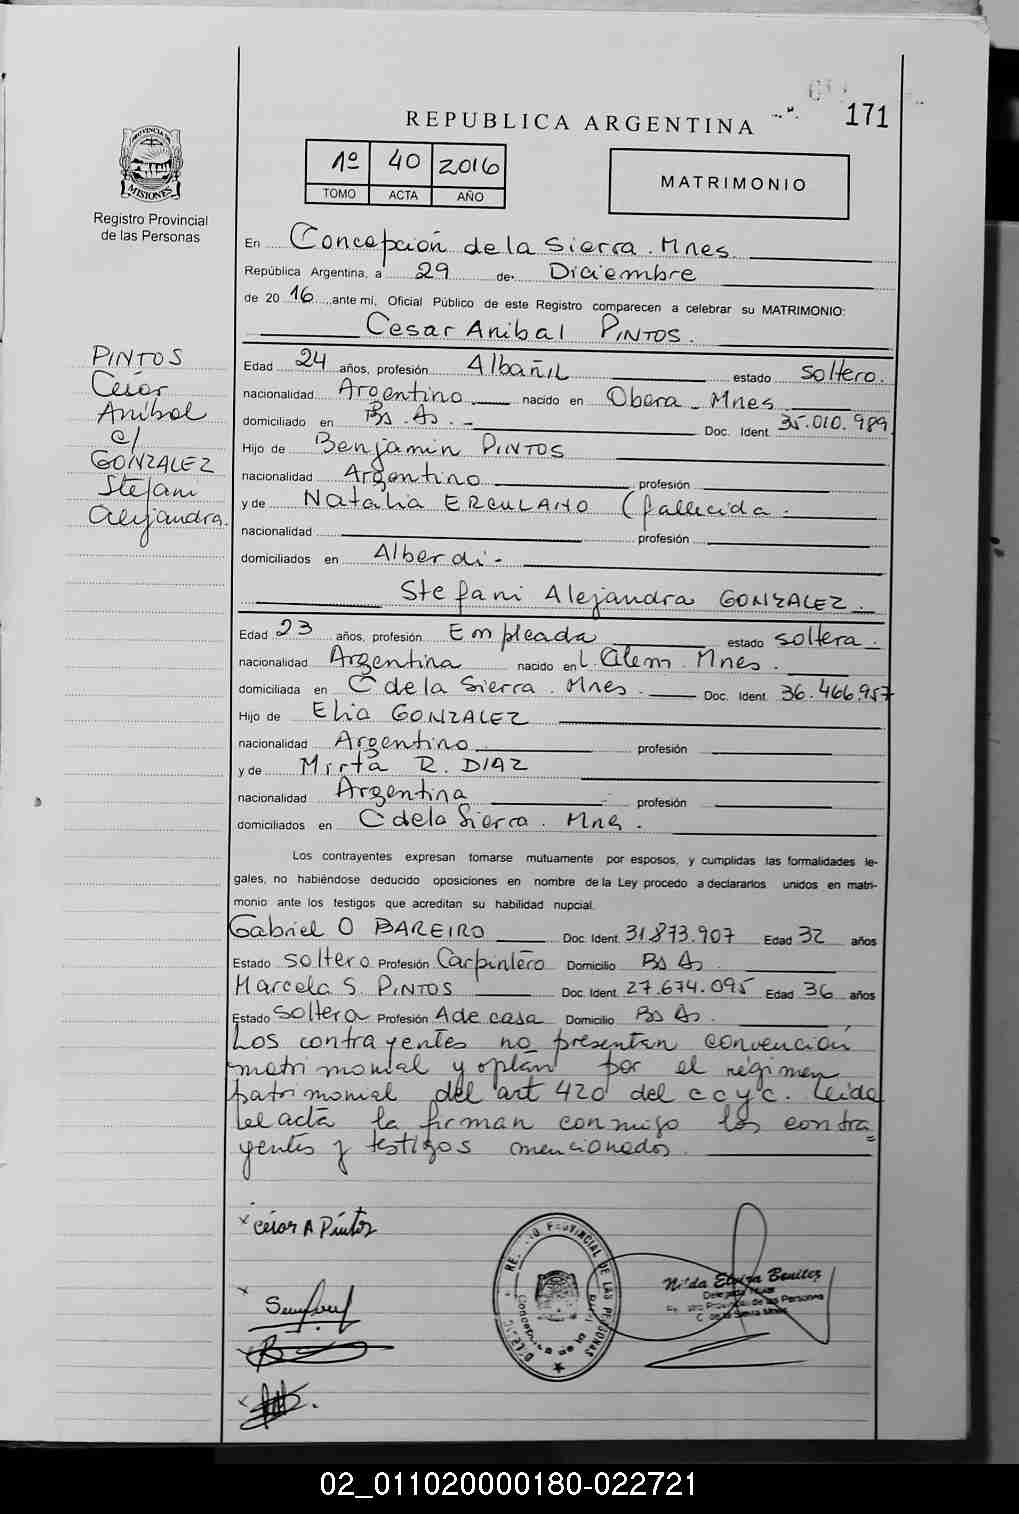 171
REPUBLICA ARGENTINA
PROVINCIA DE
MISIONES
Registro Provincial
de las Personas
1º 40 2016
TOMO ACTA AÑO
MATRIMONIO
En Concepción de la Sierra. Mnes
República Argentina, a 29 de Diciembre
de 2016, ante mí, Oficial Público de este Registro comparecen a celebrar su MATRIMONIO:
Cesar Anibal PINTOS.
PINTOS
César
Anibal
c/
GONZALEZ
Stefani
Alejandra.
Edad 24 años, profesión Albañil estado soltero.
nacionalidad Argentino nacido en Obera - Mnes
domiciliado en Bs. As. - Doc. Ident. 35.010.989
Hijo de Benjamin PINTOS
nacionalidad Argentino profesión
y de Natalia ERCULANO (fallecida.
nacionalidad profesión
domiciliados en Alberdi -
Stefani Alejandra GONZALEZ.
Edad 23 años, profesión Empleada estado soltera.
nacionalidad Argentina nacido en L. Alem. Mnes.
domiciliada en C de la Sierra. Mnes. Doc. Ident. 36.466.957
Hijo de Elio GONZALEZ
nacionalidad Argentino profesión
y de Mirta R. DIAZ
nacionalidad Argentina profesión
domiciliados en C de la Sierra. Mnes.
Los contrayentes expresan tomarse mutuamente por esposos, y cumplidas las formalidades le-
gales, no habiéndose deducido oposiciones en nombre de la Ley procedo a declararlos unidos en matri-
monio ante los testigos que acreditan su habilidad nupcial.
Gabriel O BAREIRO Doc. Ident. 31.873.907 Edad 32 años
Estado soltero Profesión Carpintero Domicilio Bs As
Marcela S. PINTOS Doc. Ident. 27.674.095 Edad 36 años
Estado soltera Profesión A de casa Domicilio Bs As.
Los contrayentes no presentan convención
matrimonial y optan por el régimen
patrimonial del art 420 del c c y c. Leida
el acta la firman conmigo los contra
yentes y testigos mencionados.
x César A Pintos
REGISTRO PROVINCIAL DE LAS PERSONAS
Nilda Elvira Benitez
Delegada Titular
Registro Provincial de las Personas
C. de la Sierra Mnes
02_011020000180-022721